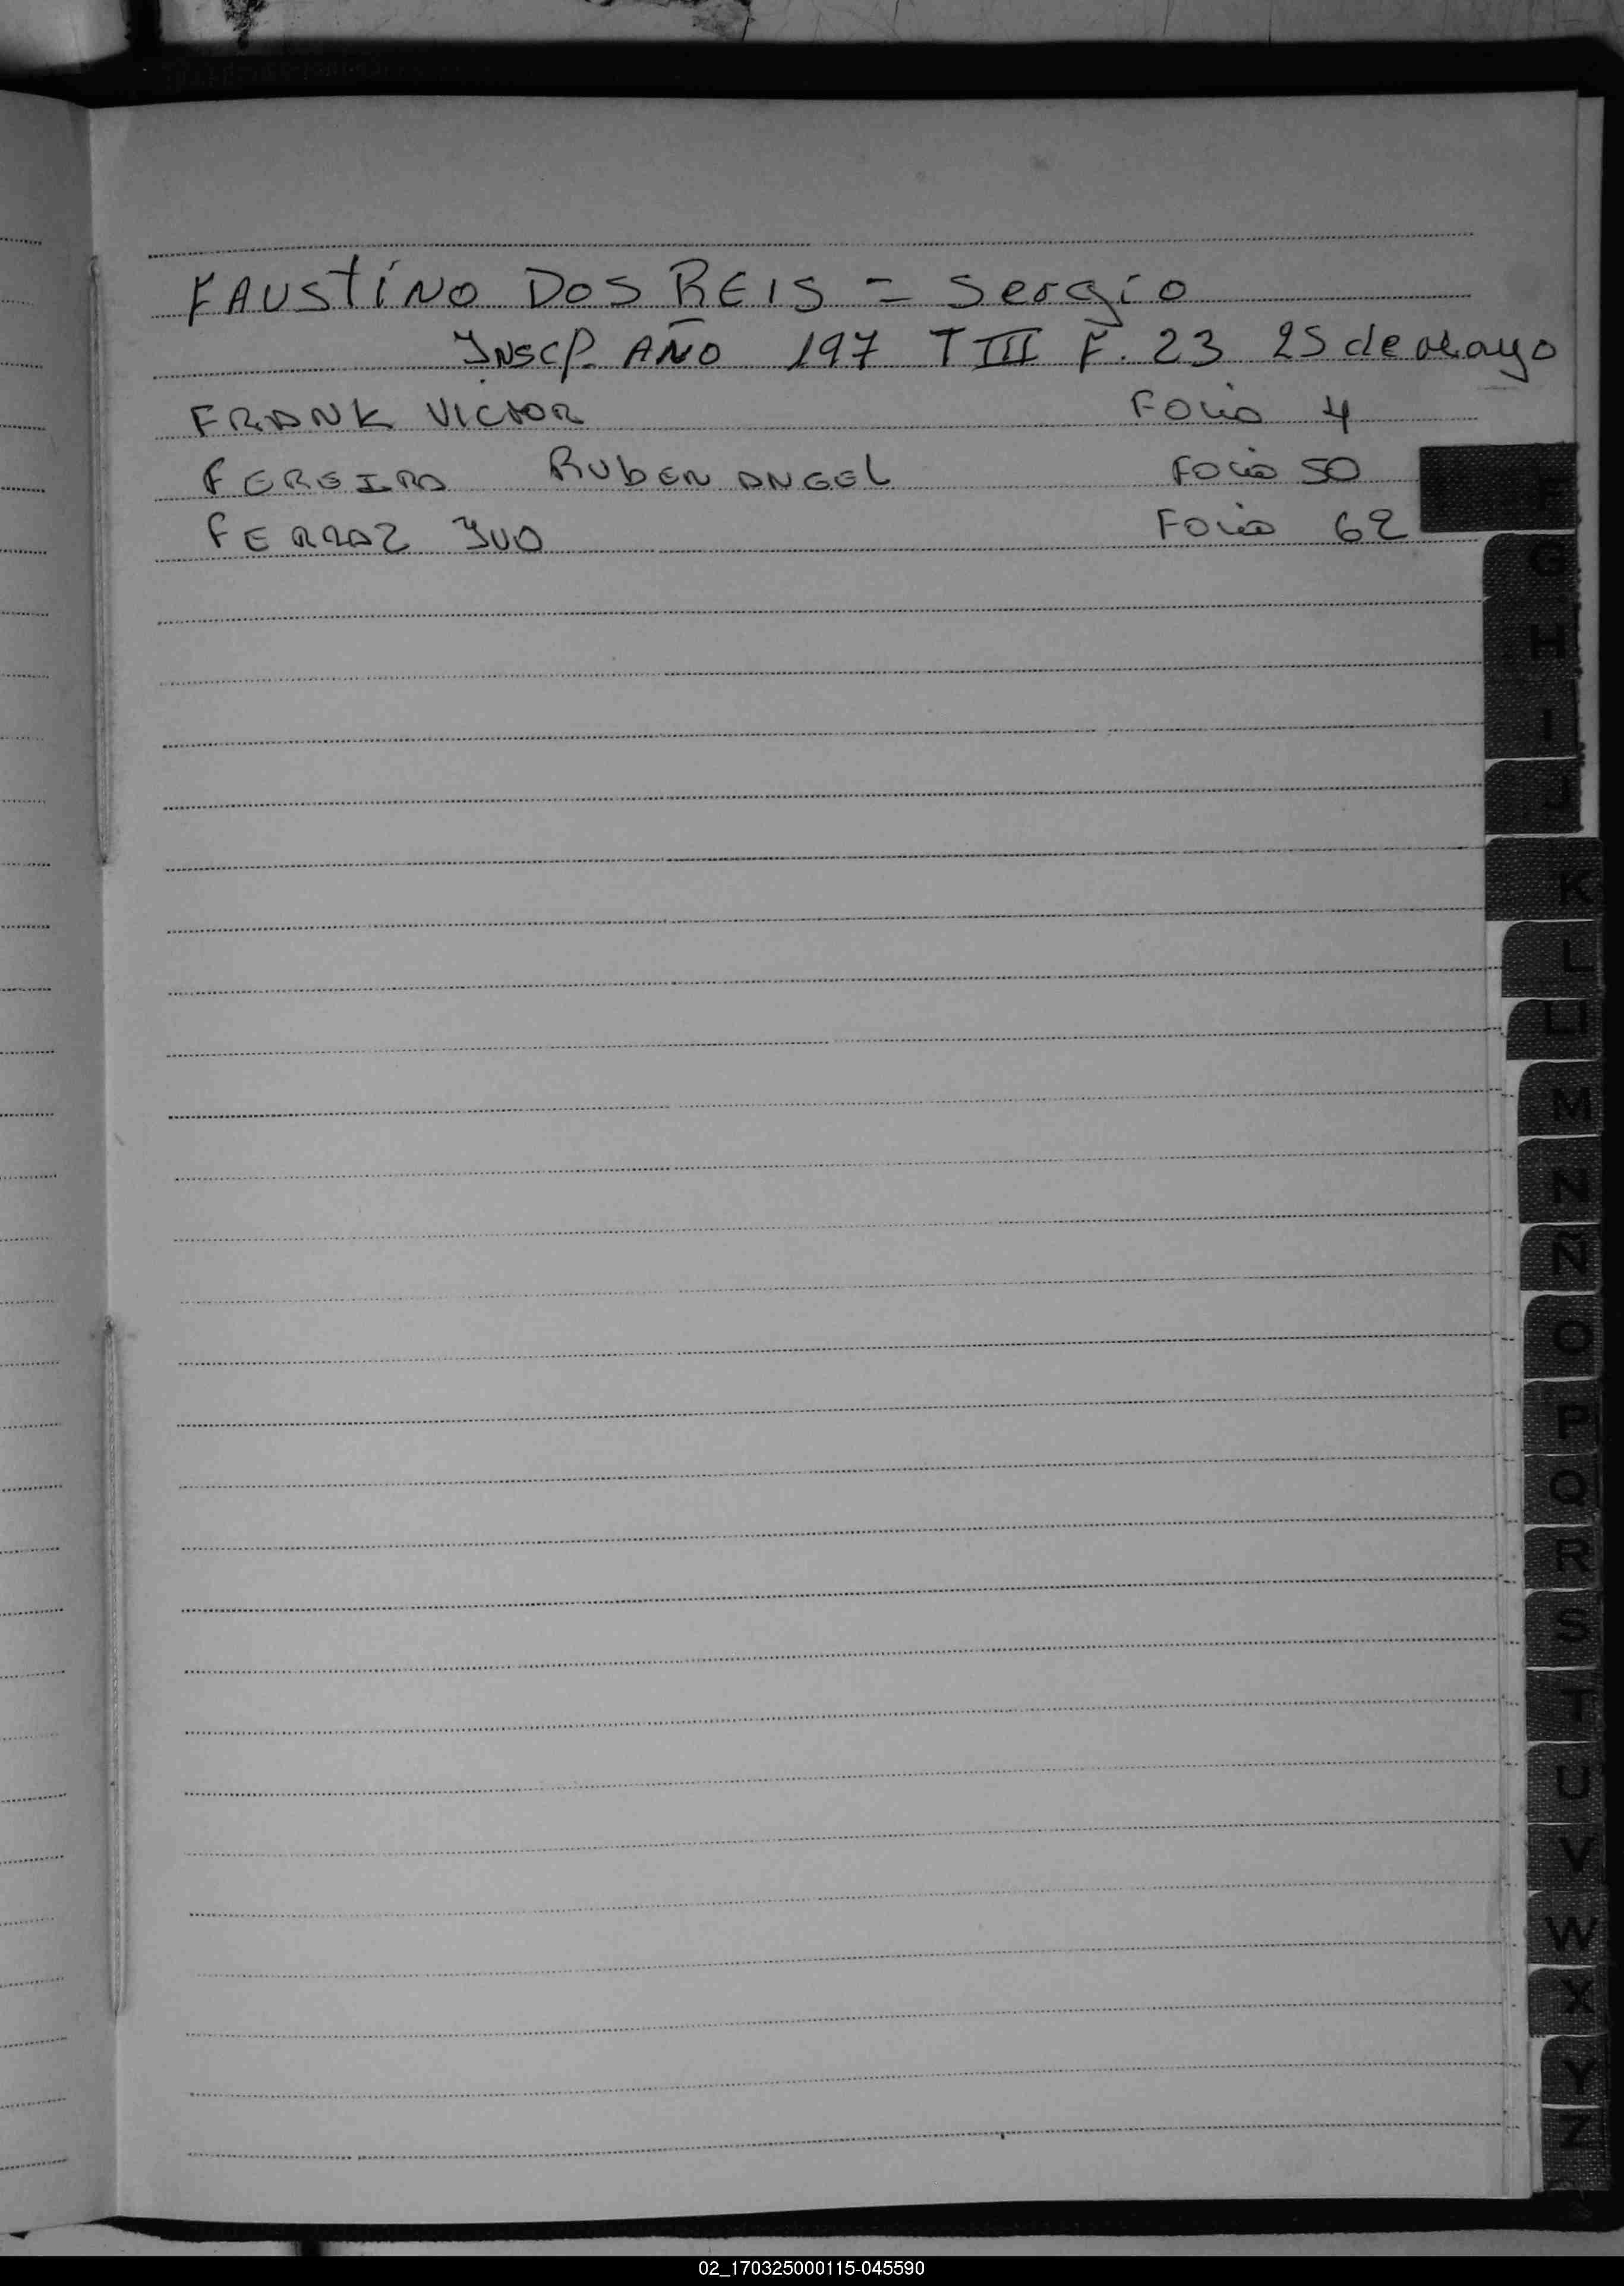 FAUSTINO DOS REIS = Sergio
INSCP. AÑO 197 T III F. 23 25 de Mayo
FRANK VICTOR Folio 4
FEREIRA RUBEN ANGEL Folio 50
FERRAZ IVO Folio 62
G
H
I
J
K
L
LL
M
N
Ñ
O
P
Q
R
S
T
U
V
W
X
Y
Z
02_170325000115-045590